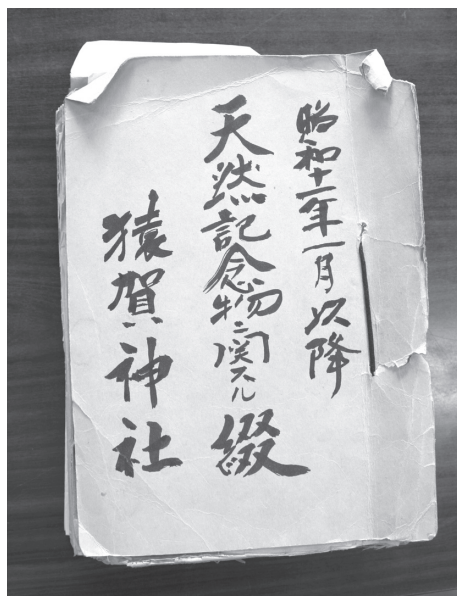 昭和十一年一月以降
天然記念物ニ関スル綴
猿賀神社